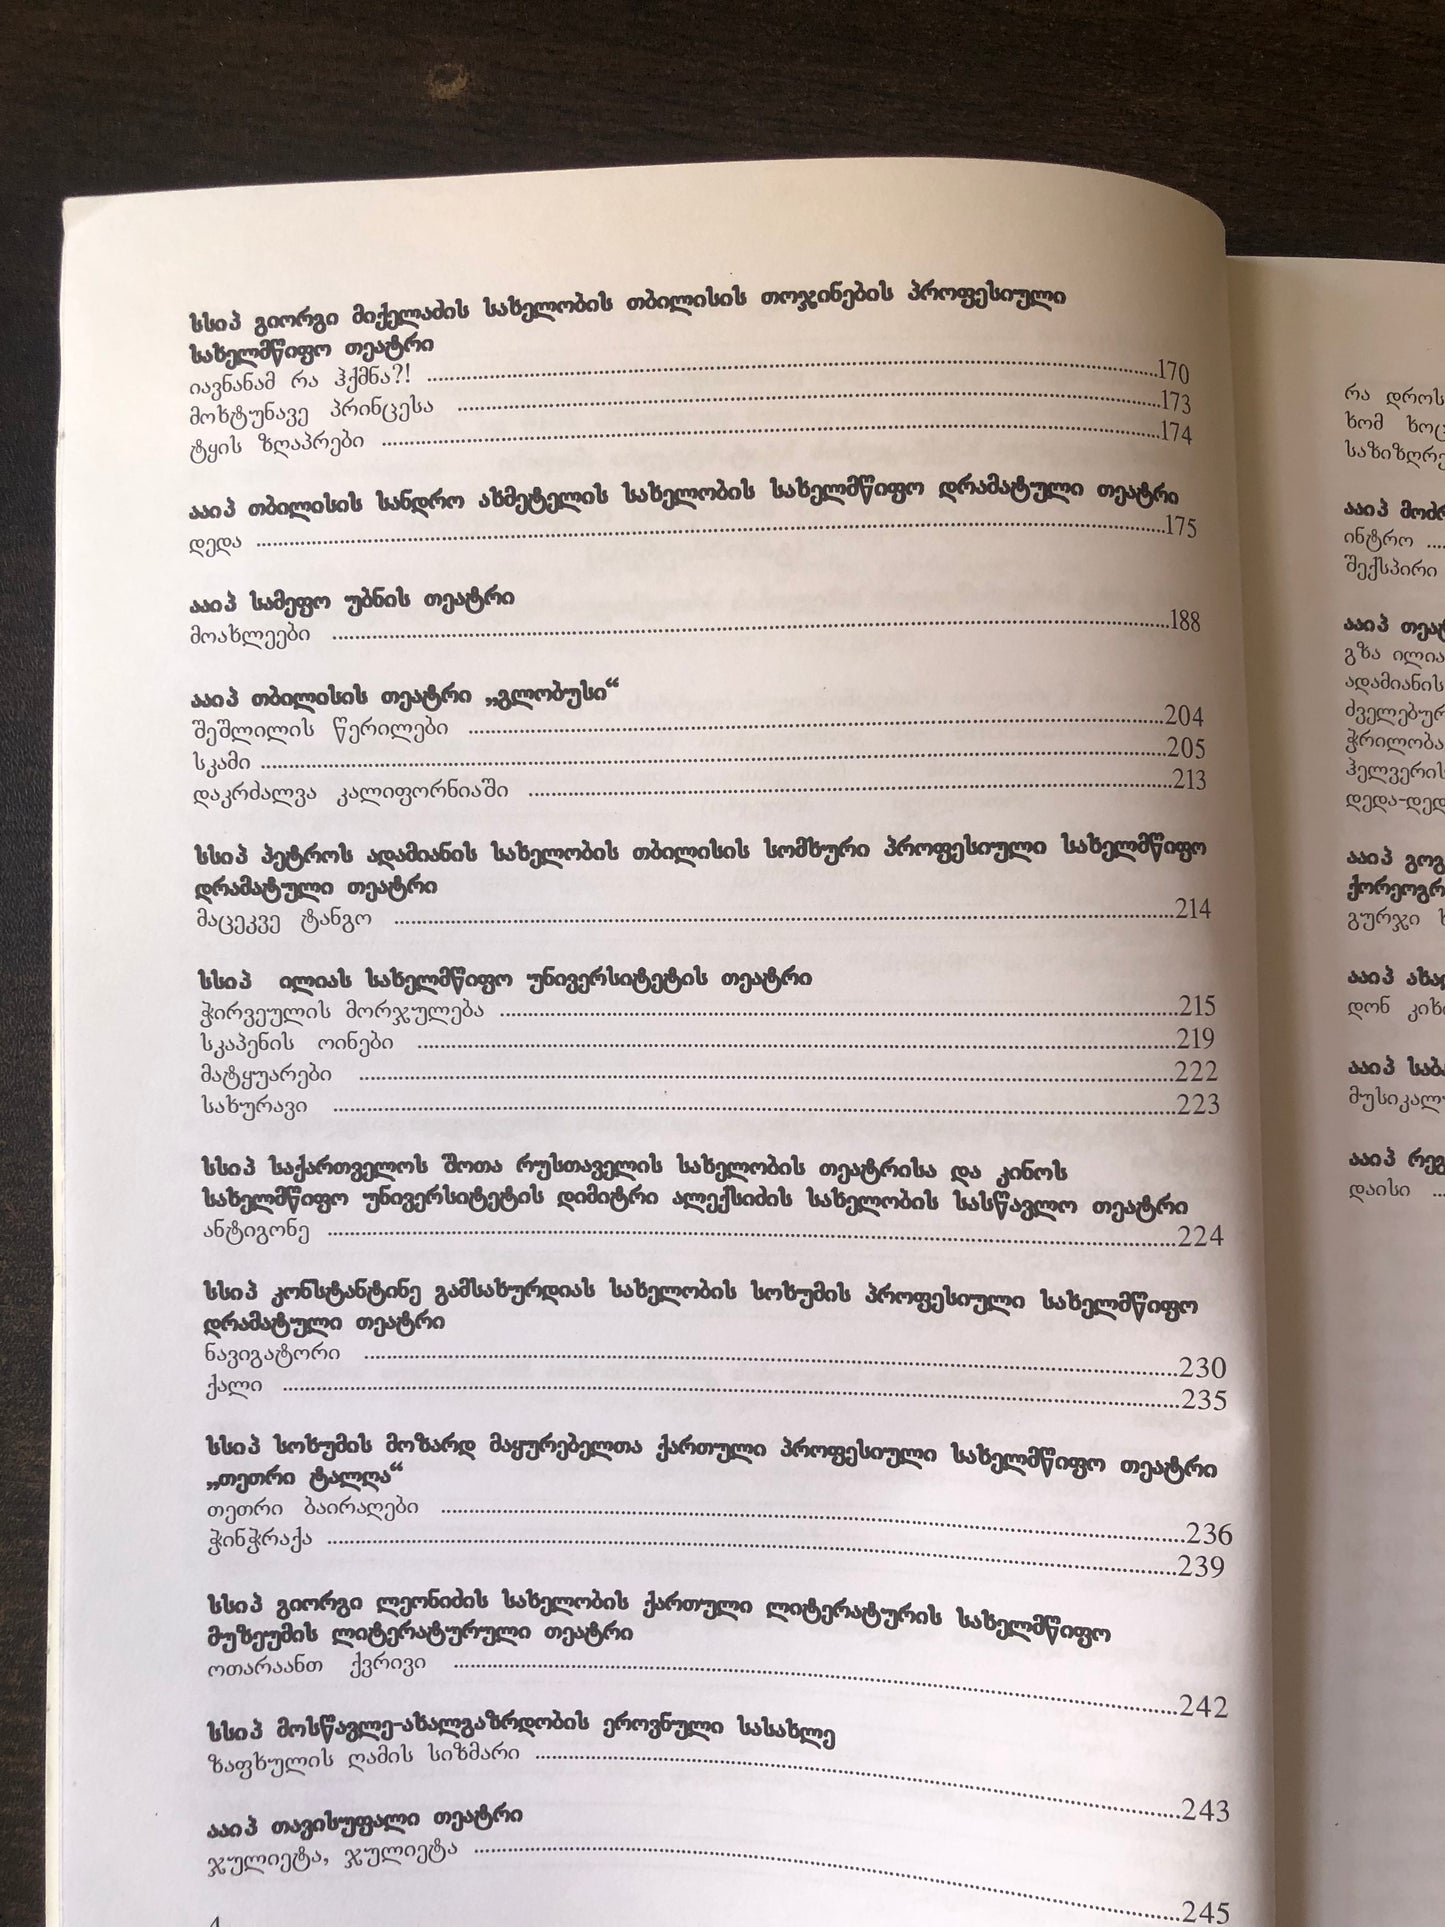 სსიპ გიორგი მიქელაძის სახელობის თბილისის თოჯინების პროფესიული
სახელმწიფო თეატრი
იავნანამ რა ჰქმნა?! ...170
მოხტუნავე პრინცესა ...173
ტყის ზღაპრები ...174
ააიპ თბილისის სანდრო ახმეტელის სახელობის სახელმწიფო დრამატული თეატრი
დედა ...175
ააიპ სამეფო უბნის თეატრი
მოახლეები ...188
ააიპ თბილისის თეატრი „გლობუსი“
შეშლილის წერილები ...204
სკამი ...205
დაკრძალვა კალიფორნიაში ...213
სსიპ პეტროს ადამიანის სახელობის თბილისის სომხური პროფესიული სახელმწიფო
დრამატული თეატრი
მაცეკვე ტანგო ...214
სსიპ ილიას სახელმწიფო უნივერსიტეტის თეატრი
ჭირვეულის მორჯულება ...215
სკაპენის ოინები ...219
მატყუარები ...222
სახურავი ...223
სსიპ საქართველოს შოთა რუსთაველის სახელობის თეატრისა და კინოს
სახელმწიფო უნივერსიტეტის დიმიტრი ალექსიძის სახელობის სასწავლო თეატრი
ანტიგონე ...224
სსიპ კონსტანტინე გამსახურდიას სახელობის სოხუმის პროფესიული სახელმწიფო
დრამატული თეატრი
ნავიგატორი ...230
ქალი ...235
სსიპ სოხუმის მოზარდ მაყურებელთა ქართული პროფესიული სახელმწიფო თეატრი
„თეთრი ტალღა“
თეთრი ბაირაღები ...236
ჭინჭრაქა ...239
სსიპ გიორგი ლეონიძის სახელობის ქართული ლიტერატურის სახელმწიფო
მუზეუმის ლიტერატურული თეატრი
ოთარაანთ ქვრივი ...242
სსიპ მოსწავლე-ახალგაზრდობის ეროვნული სასახლე
ზაფხულის ღამის სიზმარი ...243
ააიპ თავისუფალი თეატრი
ჯულიეტა, ჯულიეტა ...245
რა დროს
ხომ
ააიპ
ინტრო ...
შექსპირი
ააიპ
გზა ილია
ადამიანის
დედა-დედ
ააიპ
გურჯი
ააიპ
დონ
ააიპ
ააიპ
დაისი ...